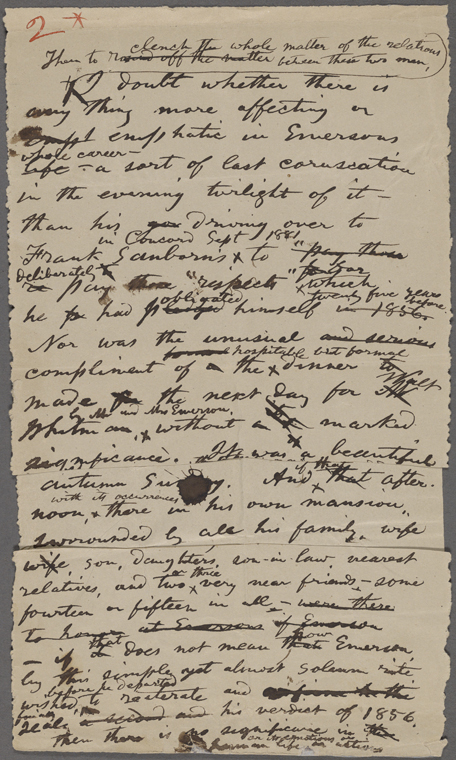 2 *
clench the whole matter of the relations
Then to round off the matter between these two men,
I doubt whether there is
any thing more affecting or
emphatic in Emersons
whole career
life – a sort of last coruscation
in the evening twilight of it –
than his driving over to
in Concord Sept 1881
Frank Sanborn's to "pay those
deliberately
pay those "respects" for which
obligated twenty five years before
he had himself in 1856.
Nor was the unusual and serious
hospitable but formal
compliment of a the dinner to
made the next day for Walt
by Mr and Mrs Emerson,
Whitman, without a marked
significance. It was a beautiful
if that
autumn Sunday. And that after-
with its occurrences
noon, there in his own mansion,
surrounded by all his family, wife
wife, son, daughters, son-in-law nearest
or three
relatives, and two very near friends – some
fourteen or fifteen in all – were these
to honor at Emersons if Emerson
that now
– if does not mean that Emerson
by this simple yet almost solemn rite
before he departed
wished to reiterate and
finally
seal a second and his verdict of 1856.
then there is no significance in the
or its emotions or
human life or action